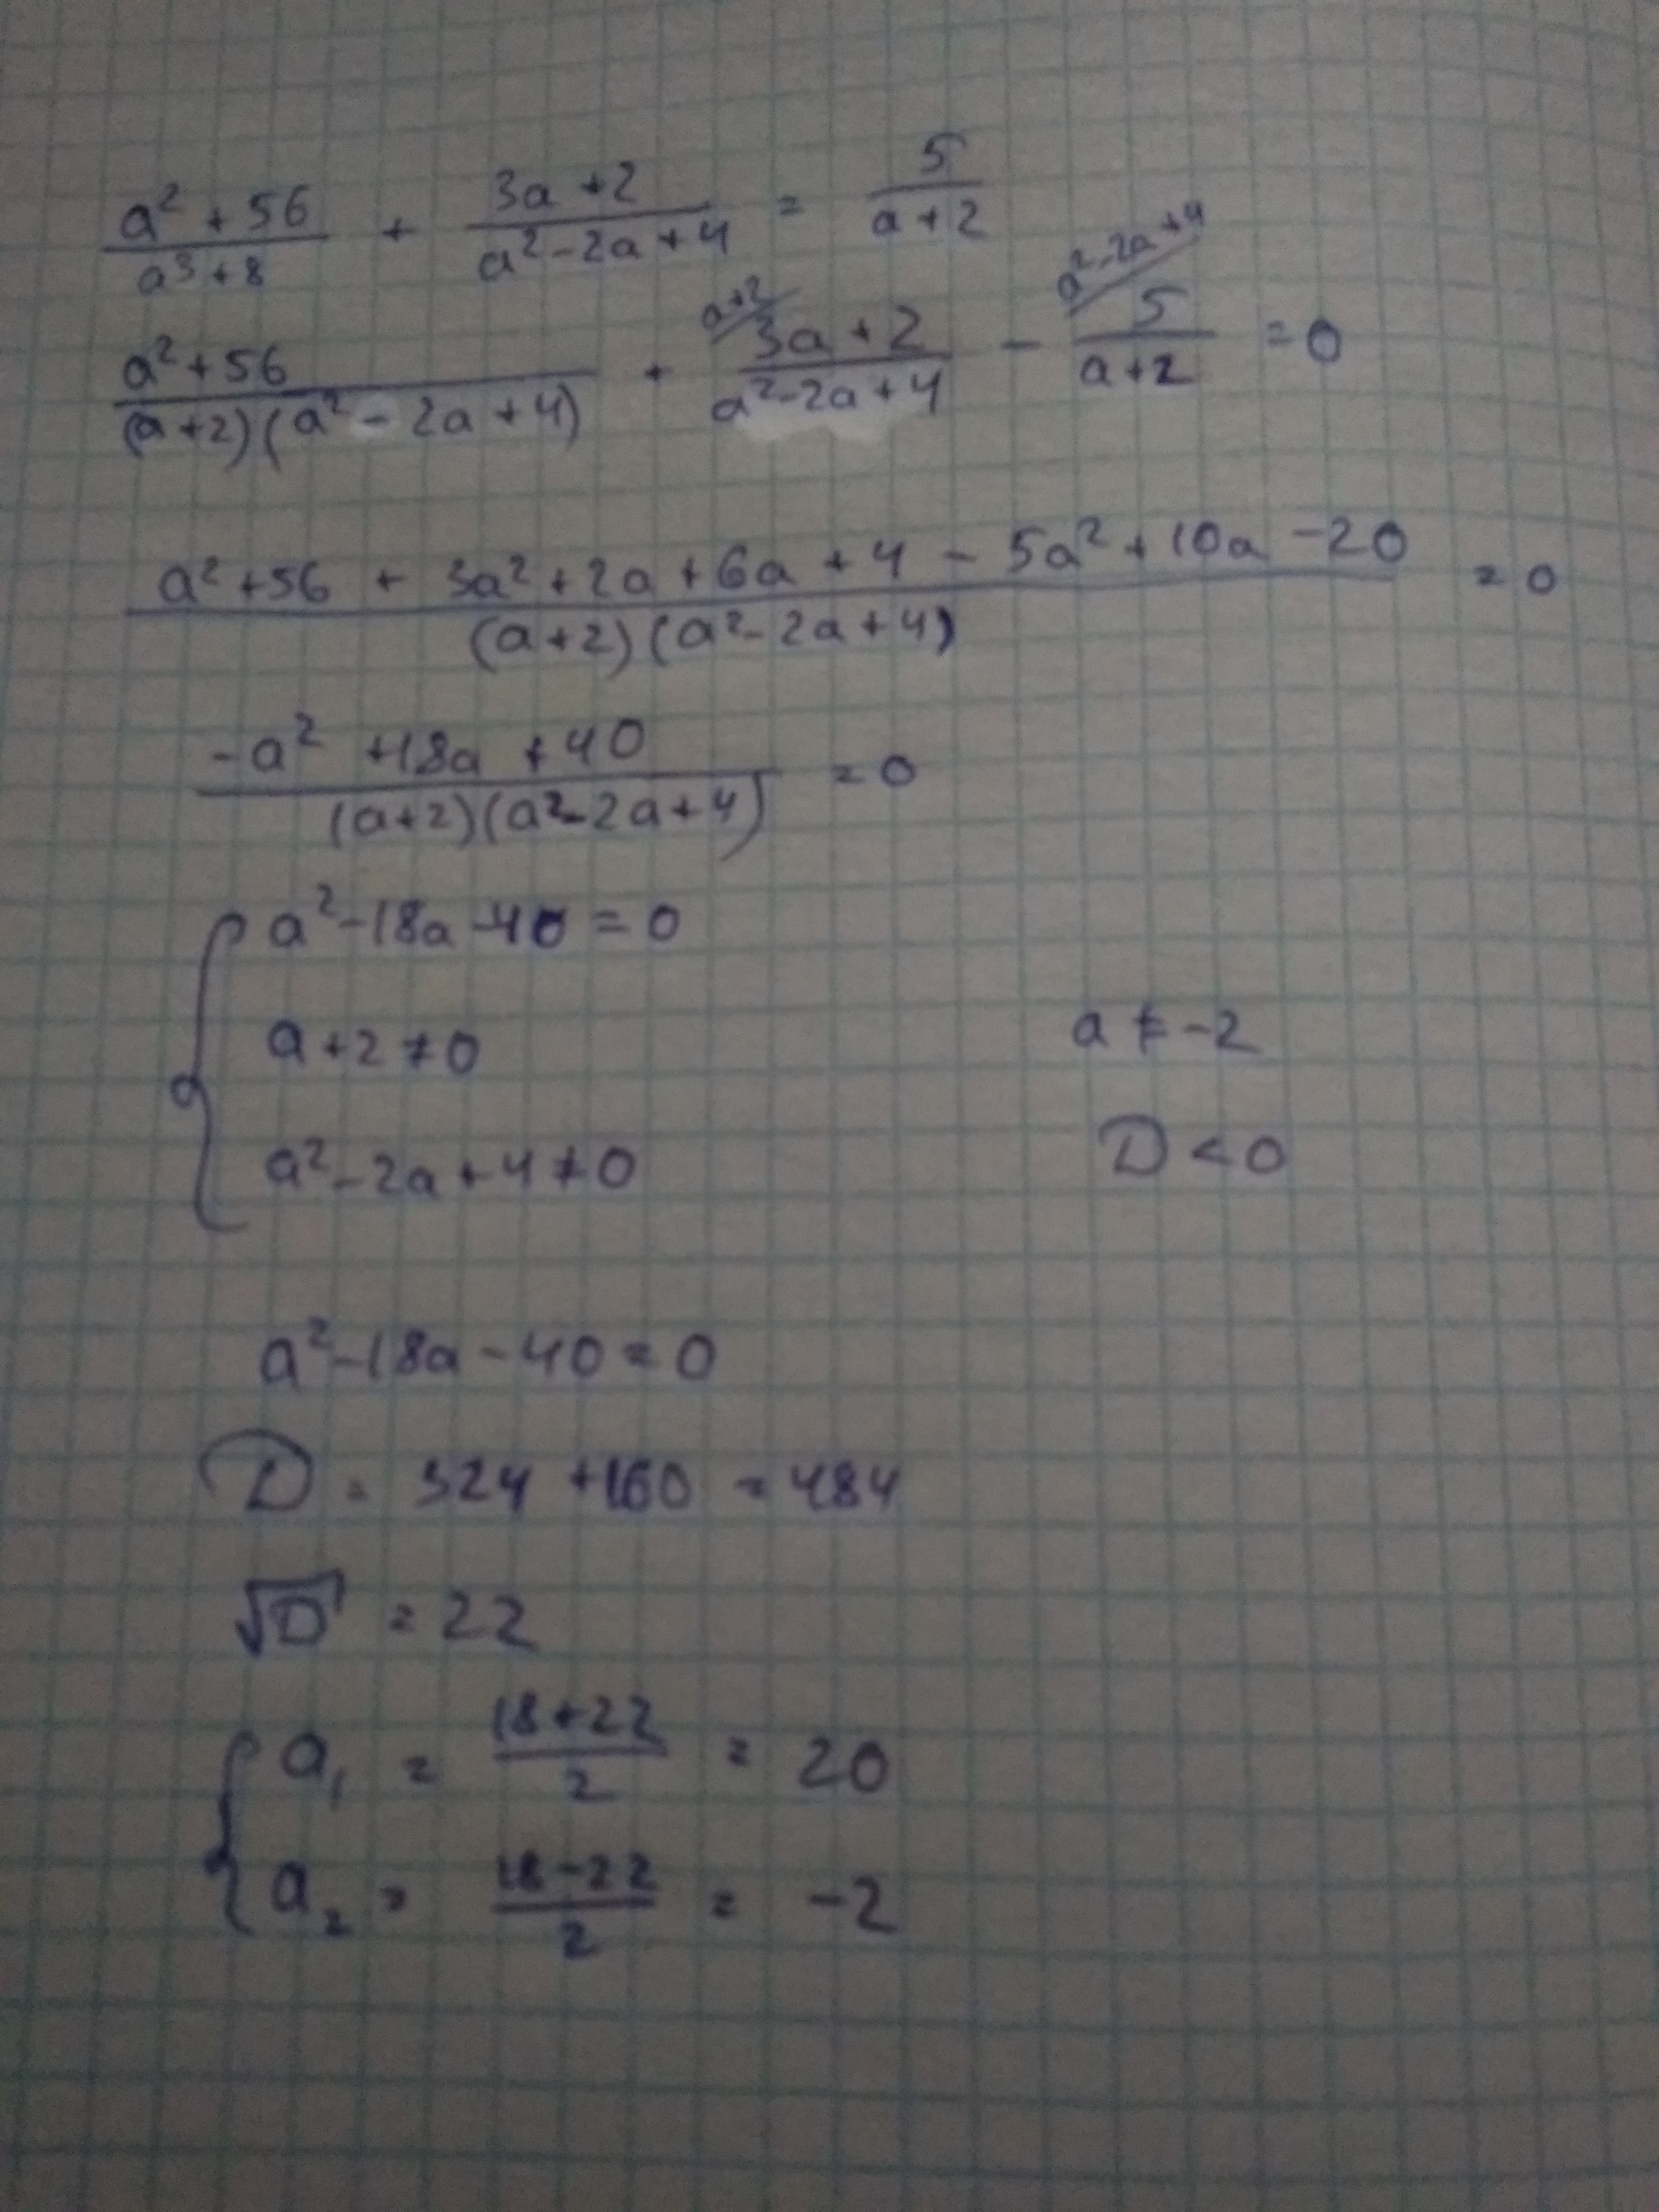 (a² + 56)/(a³ + 8) + (3a + 2)/(a² - 2a + 4) = 5/(a + 2)
(a² + 56)/((a + 2)(a² - 2a + 4)) + a+2/ (3a + 2)/(a² - 2a + 4) - a² - 2a + 4/ 5/(a + 2) = 0
(a² + 56 + 3a² + 2a + 6a + 4 - 5a² + 10a - 20)/((a + 2)(a² - 2a + 4)) = 0
(-a² + 18a + 40)/((a + 2)(a² - 2a + 4)) = 0
{ a² - 18a - 40 = 0
a + 2 ≠ 0 a ≠ -2
a² - 2a + 4 ≠ 0 D < 0
a² - 18a - 40 = 0
D = 324 + 160 = 484
√D = 22
{ a₁ = (18 + 22)/2 = 20
a₂ = (18 - 22)/2 = -2